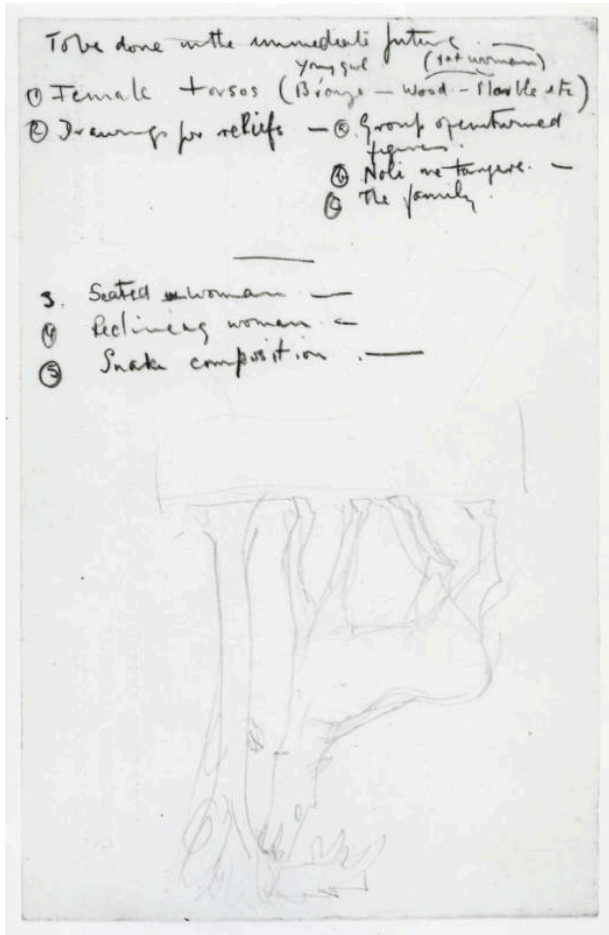 To be done in the immediate future
young girl (fat woman)
① Female torsos (Bronze – Wood – Marble etc)
② Drawings for reliefs – ⓐ Group of enturned
figures.
ⓑ Noli me tangere. –
ⓒ The family.
3. Seated woman. –
④ Reclining woman. –
⑤ Snake composition. –